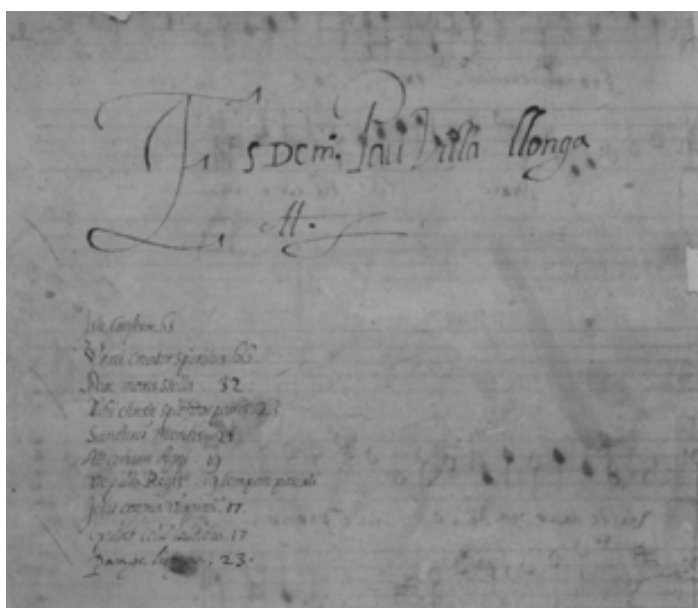 Es De m.º Pau Villa llonga
Veni creator spiritus 66.
Ave maris stella 32
Tibi christe splendor patris 23
Sanctorum meritis 21
Ad cenam Agni . 19
Vexilla Regis . 19 tempore paschali
Jesu corona virginum . 17
Exultet celum laudibus . 17
Pange lingua : 23 .